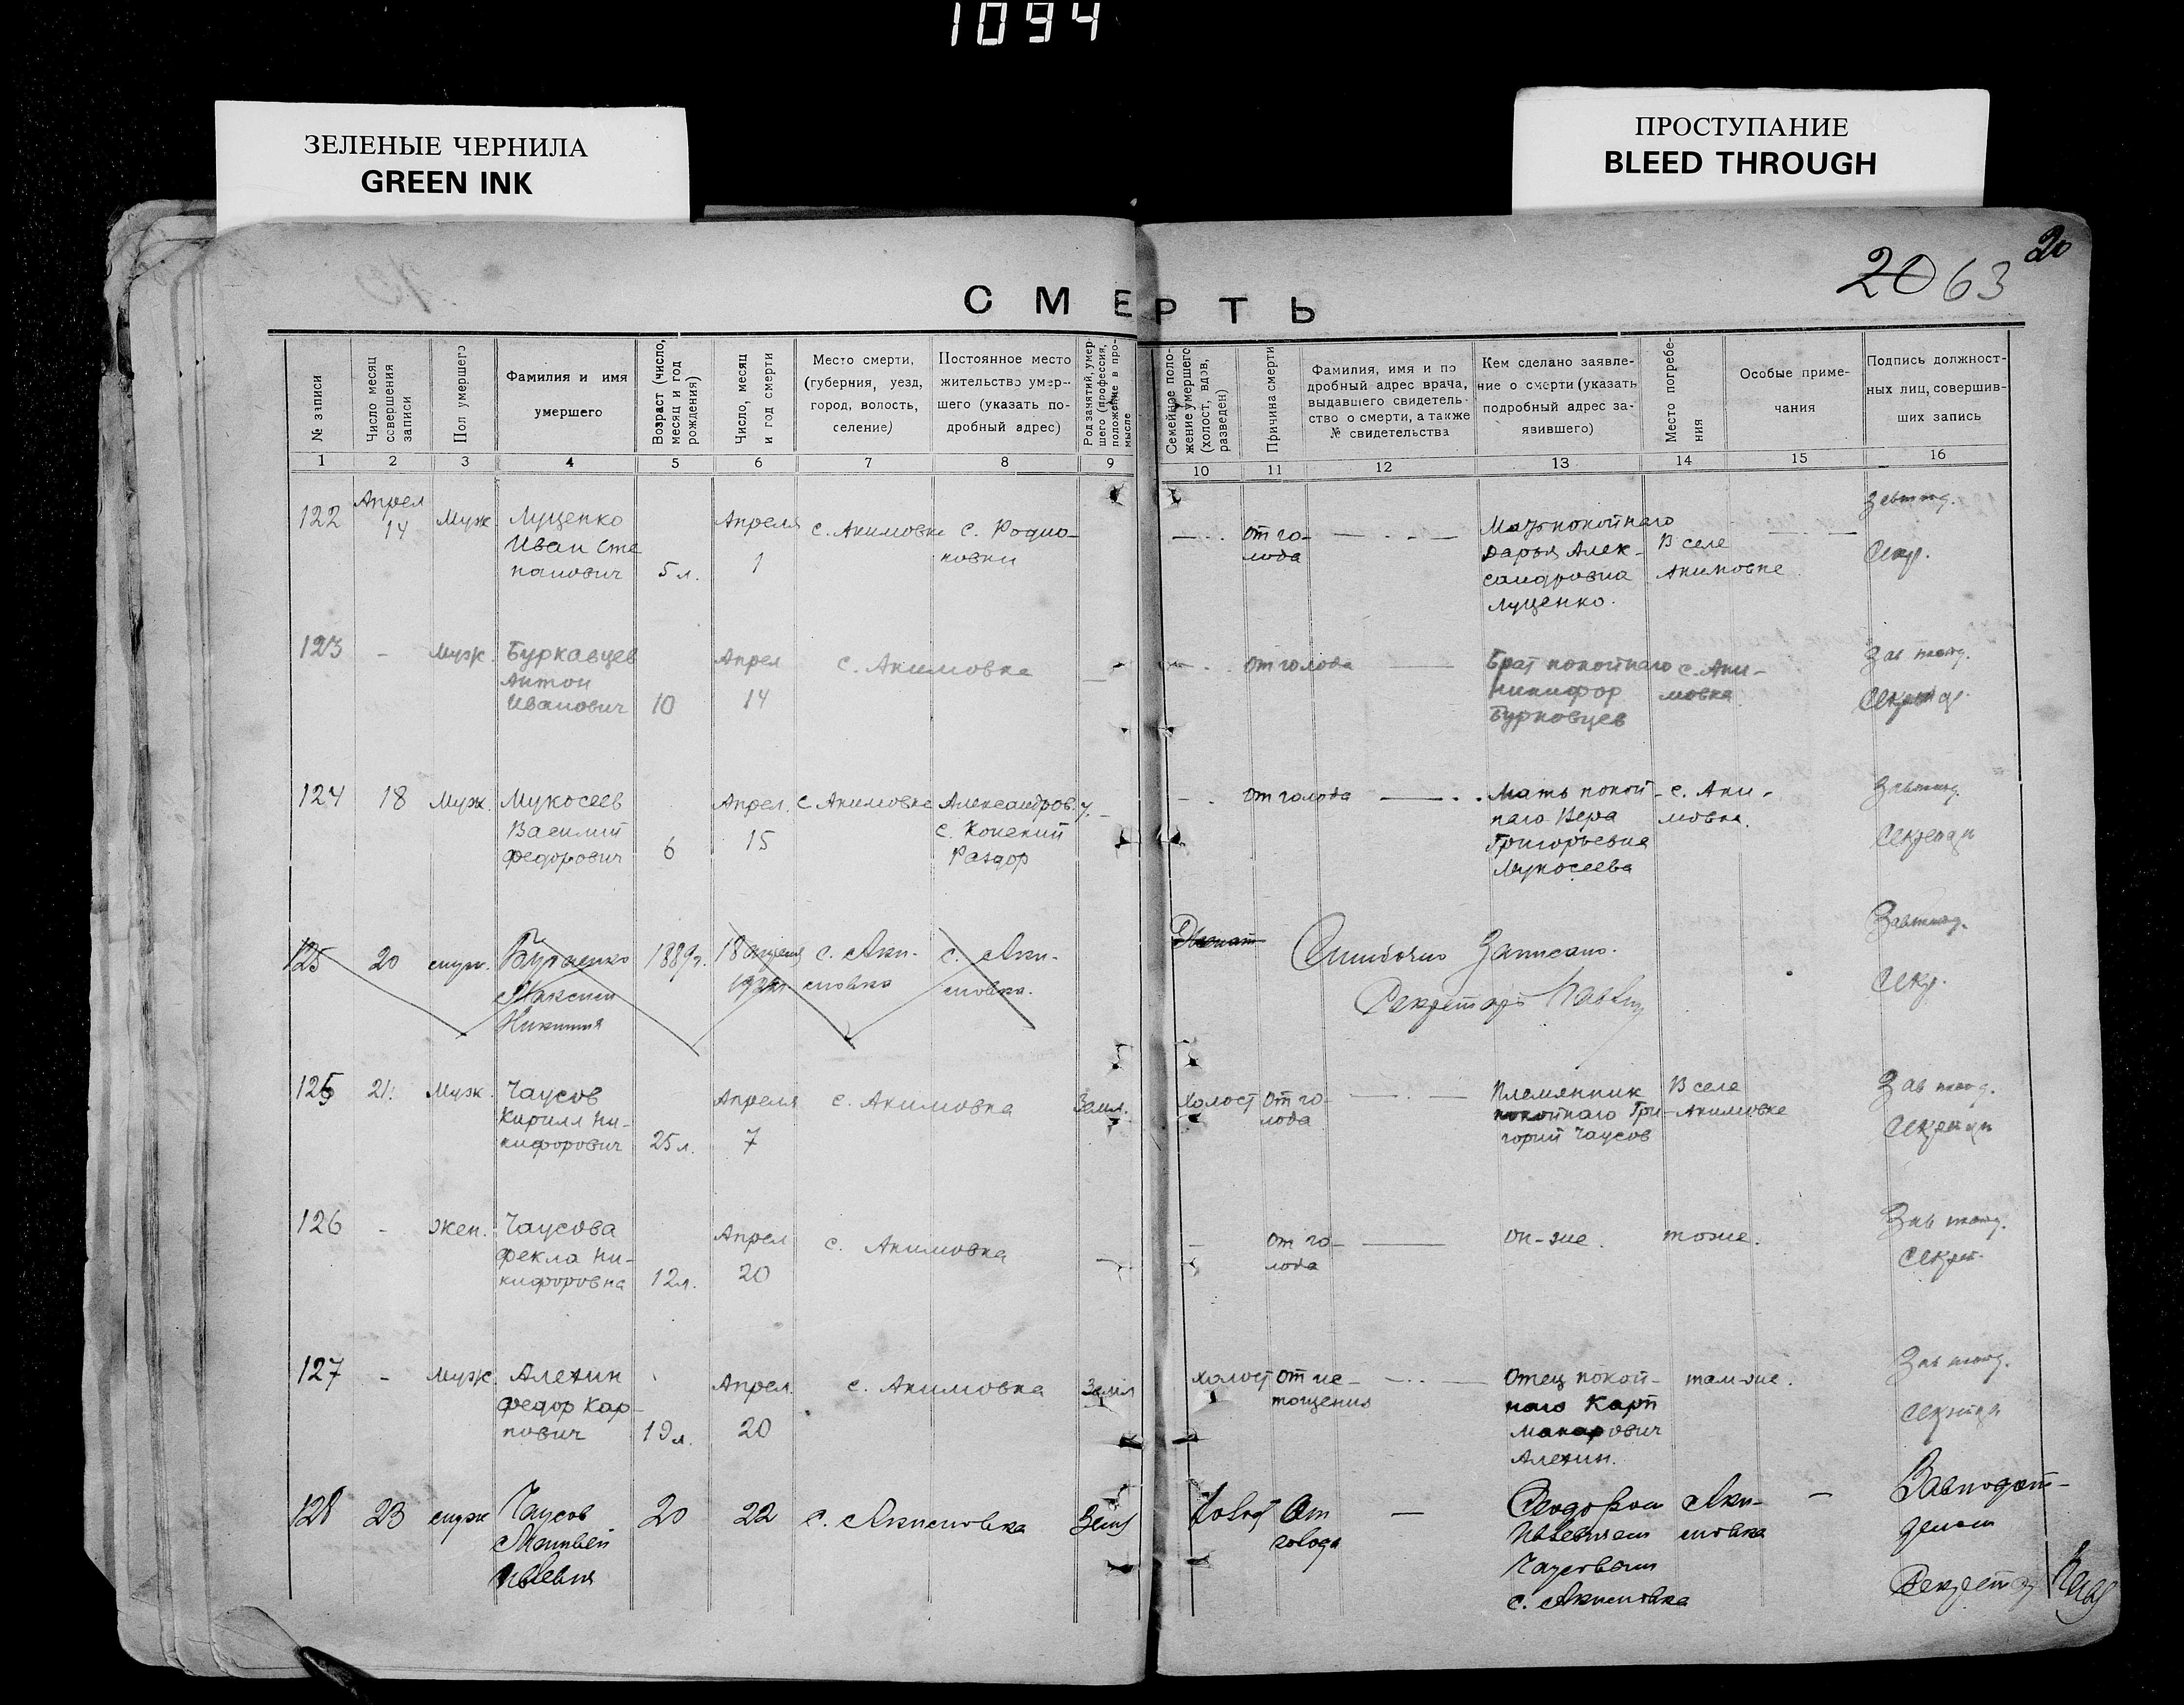 1094
ЗЕЛЕНЫЕ ЧЕРНИЛА
GREEN INK
ПРОСТУПАНИЕ
BLEED THROUGH
20
20 63
СМЕРТЬ
№ записи
Число месяц
совершения
записи
Пол умершего
Фамилия и имя
умершего
Возраст (число,
месяц и год
рождения)
Число, месяц
и год смерти
Место смерти,
(губерния, уезд,
город, волость,
селение)
Постоянное место
жительство умер-
шего (указать по-
дробный адрес)
Род занятий, умер-
шего (профессия,
положение в про-
мысле
Семейное поло-
жение умершего
(холост, вдов,
разведен)
Причина смерти
Фамилия, имя и по
дробный адрес врача,
выдавшего свидетель-
ство о смерти, а также
№ свидетельства
Кем сделано заявле-
ние о смерти (указать
подробный адрес за-
явившего)
Место погребе-
ния
Особые приме-
чания
Подпись должност-
ных лиц, совершив-
ших запись
1 2 3 4 5 6 7 8 9 10 11 12 13 14 15 16
122
Апрел
14
Муж
Луценко
Иван Сте
панович
5 л.
Апреля
1
с. Акимовке
с. Родио-
новки
от го-
лода
Мать покойнаго
Дарья Алек-
сандровна
Луценко.
В селе
Акимовке
Секр.
123
-
Муж.
Буркавцев
Антон
Иванович
10
Апрел
14
с. Акимовка
от голода
Брат покойнаго
Никифор
Бурковцев
с. Аки-
мовка
124
18
Муж.
Мукосеев
Василий
Федорович
6
Апрел.
15
с Акимовке
Александров. у.
с. Конский
Раздор
от голода
Мать покой-
наго Вера
Григорьевна
Мукосеева
с. Аки-
мовка.
125
20
муж.
Максим
1889г.
18 апреля
с. Аки-
мовка
с. Аки-
мовка.
Ошибочно Записано.
Секретарь
Секр.
125
21.
Муж.
Чаусов
Кирилл Ни-
кифорович
25 л.
Апреля
7
с. Акимовка
Земл.
Холост
От го-
лода
Племянник
покойнаго Гри-
горий Чаусов
В селе
Акимовке
126
-
Жен.
Чаусова
Фекла Ни-
кифоровна
12 л.
Апрел
20
с. Акимовка
От го-
лода
он-же.
тоже.
127
-
Муж
Алехин
Федор Кар-
пович
19 л.
Апрел.
20
с. Акимовка
Земл
Холост
От ис-
тощения
Отец покой-
наго Карп
Макарович
Алехин.
там-же.
128
23
муж
Чаусов
Матвей
20
22
с. Акимовка
Земл
Холост
От
голода
Чаусовым
с. Акимовка
Аки-
мовка
Завподот-
делом